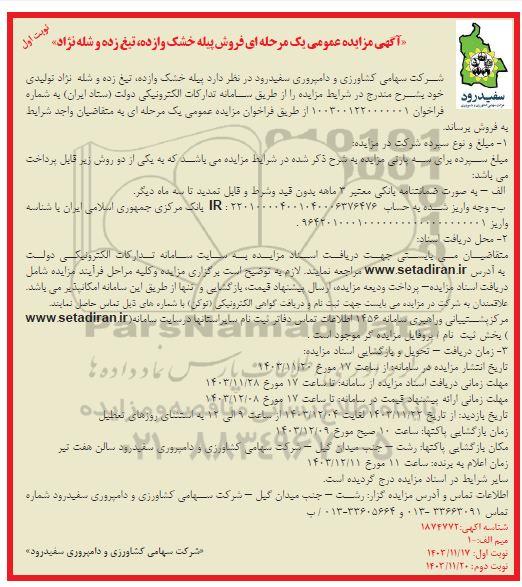 نوبت اول
«آگهی مزایده عمومی یک مرحله ای فروش پیله خشک وازده، تیغ زده و شله نژاد»
سفیدرود
شرکت سهامی کشاورزی و دامپروری سفیدرود در نظر دارد پیله خشک وازده، تیغ زده و شله نژاد تولیدی
خود بشرح مندرج در شرایط مزایده را از طریق سامانه تدارکات الکترونیکی دولت (ستاد ایران) به شماره
فراخوان ۱۰۰۳۰۰۱۲۲۰۰۰۰۰۰۱ از طریق فراخوان مزایده عمومی یک مرحله ای به متقاضیان واجد شرایط
به فروش برساند.
۱- مبلغ و نوع سپرده شرکت در مزایده:
مبلغ سپرده برای سه پارتی مزایده به شرح ذکر شده در شرایط مزایده می باشد که به یکی از دو روش زیر قابل پرداخت
می باشد:
الف – به صورت ضمانتنامه بانکی معتبر ۳ ماهه بدون قید وشرط و قابل تمدید تا سه ماه دیگر.
ب- وجه واریز شده به حساب IR : ۲۲۰۱۰۰۰۰۴۰۰۱۰۴۰۰۰۶۳۷۶۴۷۶ بانک مرکزی جمهوری اسلامی ایران با شناسه
واریز
۲- محل دریافت اسناد:
متقاضیان می بایستی جهت دریافت اسناد مزایده به سایت سامانه تدارکات الکترونیکی دولت
به آدرس www.setadiran.ir مراجعه نمایند. لازم به توضیح است برگزاری مزایده وکلیه مراحل فرآیند مزایده شامل
دریافت اسناد مزایده– پرداخت ودیعه مزایده، ارسال پیشنهاد قیمت، بازگشایی و تنها از طریق این سامانه امکانپذیر می باشد.
علاقمندان به شرکت در مزایده می بایست جهت ثبت نام و دریافت گواهی الکترونیکی (توکن) با شماره های ذیل تماس حاصل نمایند.
مرکزپشتیبانی وراهبری سامانه ۱۴۵۶ اطلاعات تماس دفاتر ثبت نام سایراستانها درسایت سامانه(www.setadiran.ir
) بخش ثبت نام / پروفایل مزایده گر موجود است.
۳- زمان دریافت – تحویل و بازگشایی اسناد مزایده:
تاریخ انتشار مزایده در سامانه: از ساعت ۱۷ مورخ ۱۴۰۳/۱۱/۲۰
مهلت زمانی دریافت اسناد مزایده از سامانه: تا ساعت ۱۷ مورخ ۱۴۰۳/۱۱/۲۸
مهلت زمانی ارائه پیشنهاد قیمت در سامانه: تا ساعت ۱۷ مورخ ۱۴۰۳/۱۲/۰۸
تاریخ بازدید: از تاریخ ۱۴۰۳/۱۱/۲۲ لغایت ۱۴۰۳/۱۲/۰۴ از ساعت ۹ الی ۱۲ به استثنای روزهای تعطیل
زمان بازگشایی پاکتها: ساعت ۱۰ صبح مورخ ۱۴۰۳/۱۲/۰۹
مکان بازگشایی پاکتها: رشت – جنب میدان گیل – شرکت سهامی کشاورزی و دامپروری سفیدرود سالن هفت تیر
زمان اعلام به برنده: ساعت ۱۱ مورخ ۱۴۰۳/۱۲/۱۱
سایر شرایط در اسناد مزایده درج گردیده است.
اطلاعات تماس و آدرس مزایده گزار: رشت – جنب میدان گیل – شرکت سهامی کشاورزی و دامپروری سفیدرود شماره
تماس ۳۳۶۶۳۰۹۱ -۰۱۳ و ۳۳۶۰۵۶۶۴-۰۱۳ / ب
شناسه آگهی: ۱۸۷۴۷۷۲
میم الف: ۱۰۰
نوبت اول: ۱۴۰۳/۱۱/۱۷
نوبت دوم: ۱۴۰۳/۱۱/۲۰
«شرکت سهامی کشاورزی و دامپروری سفیدرود»